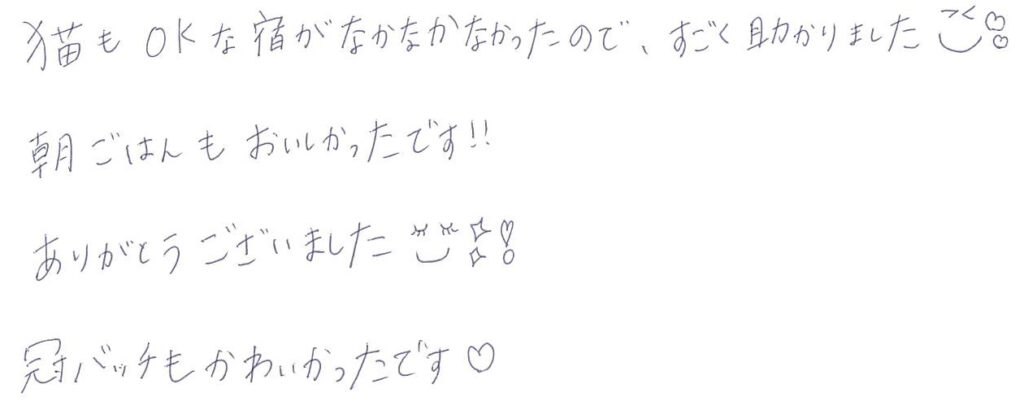 猫も OKな宿がなかなかなかったので、すごく助かりました
朝ごはんも おいしかったです!!
ありがとうございました
冠バッチもかわいかったです♡